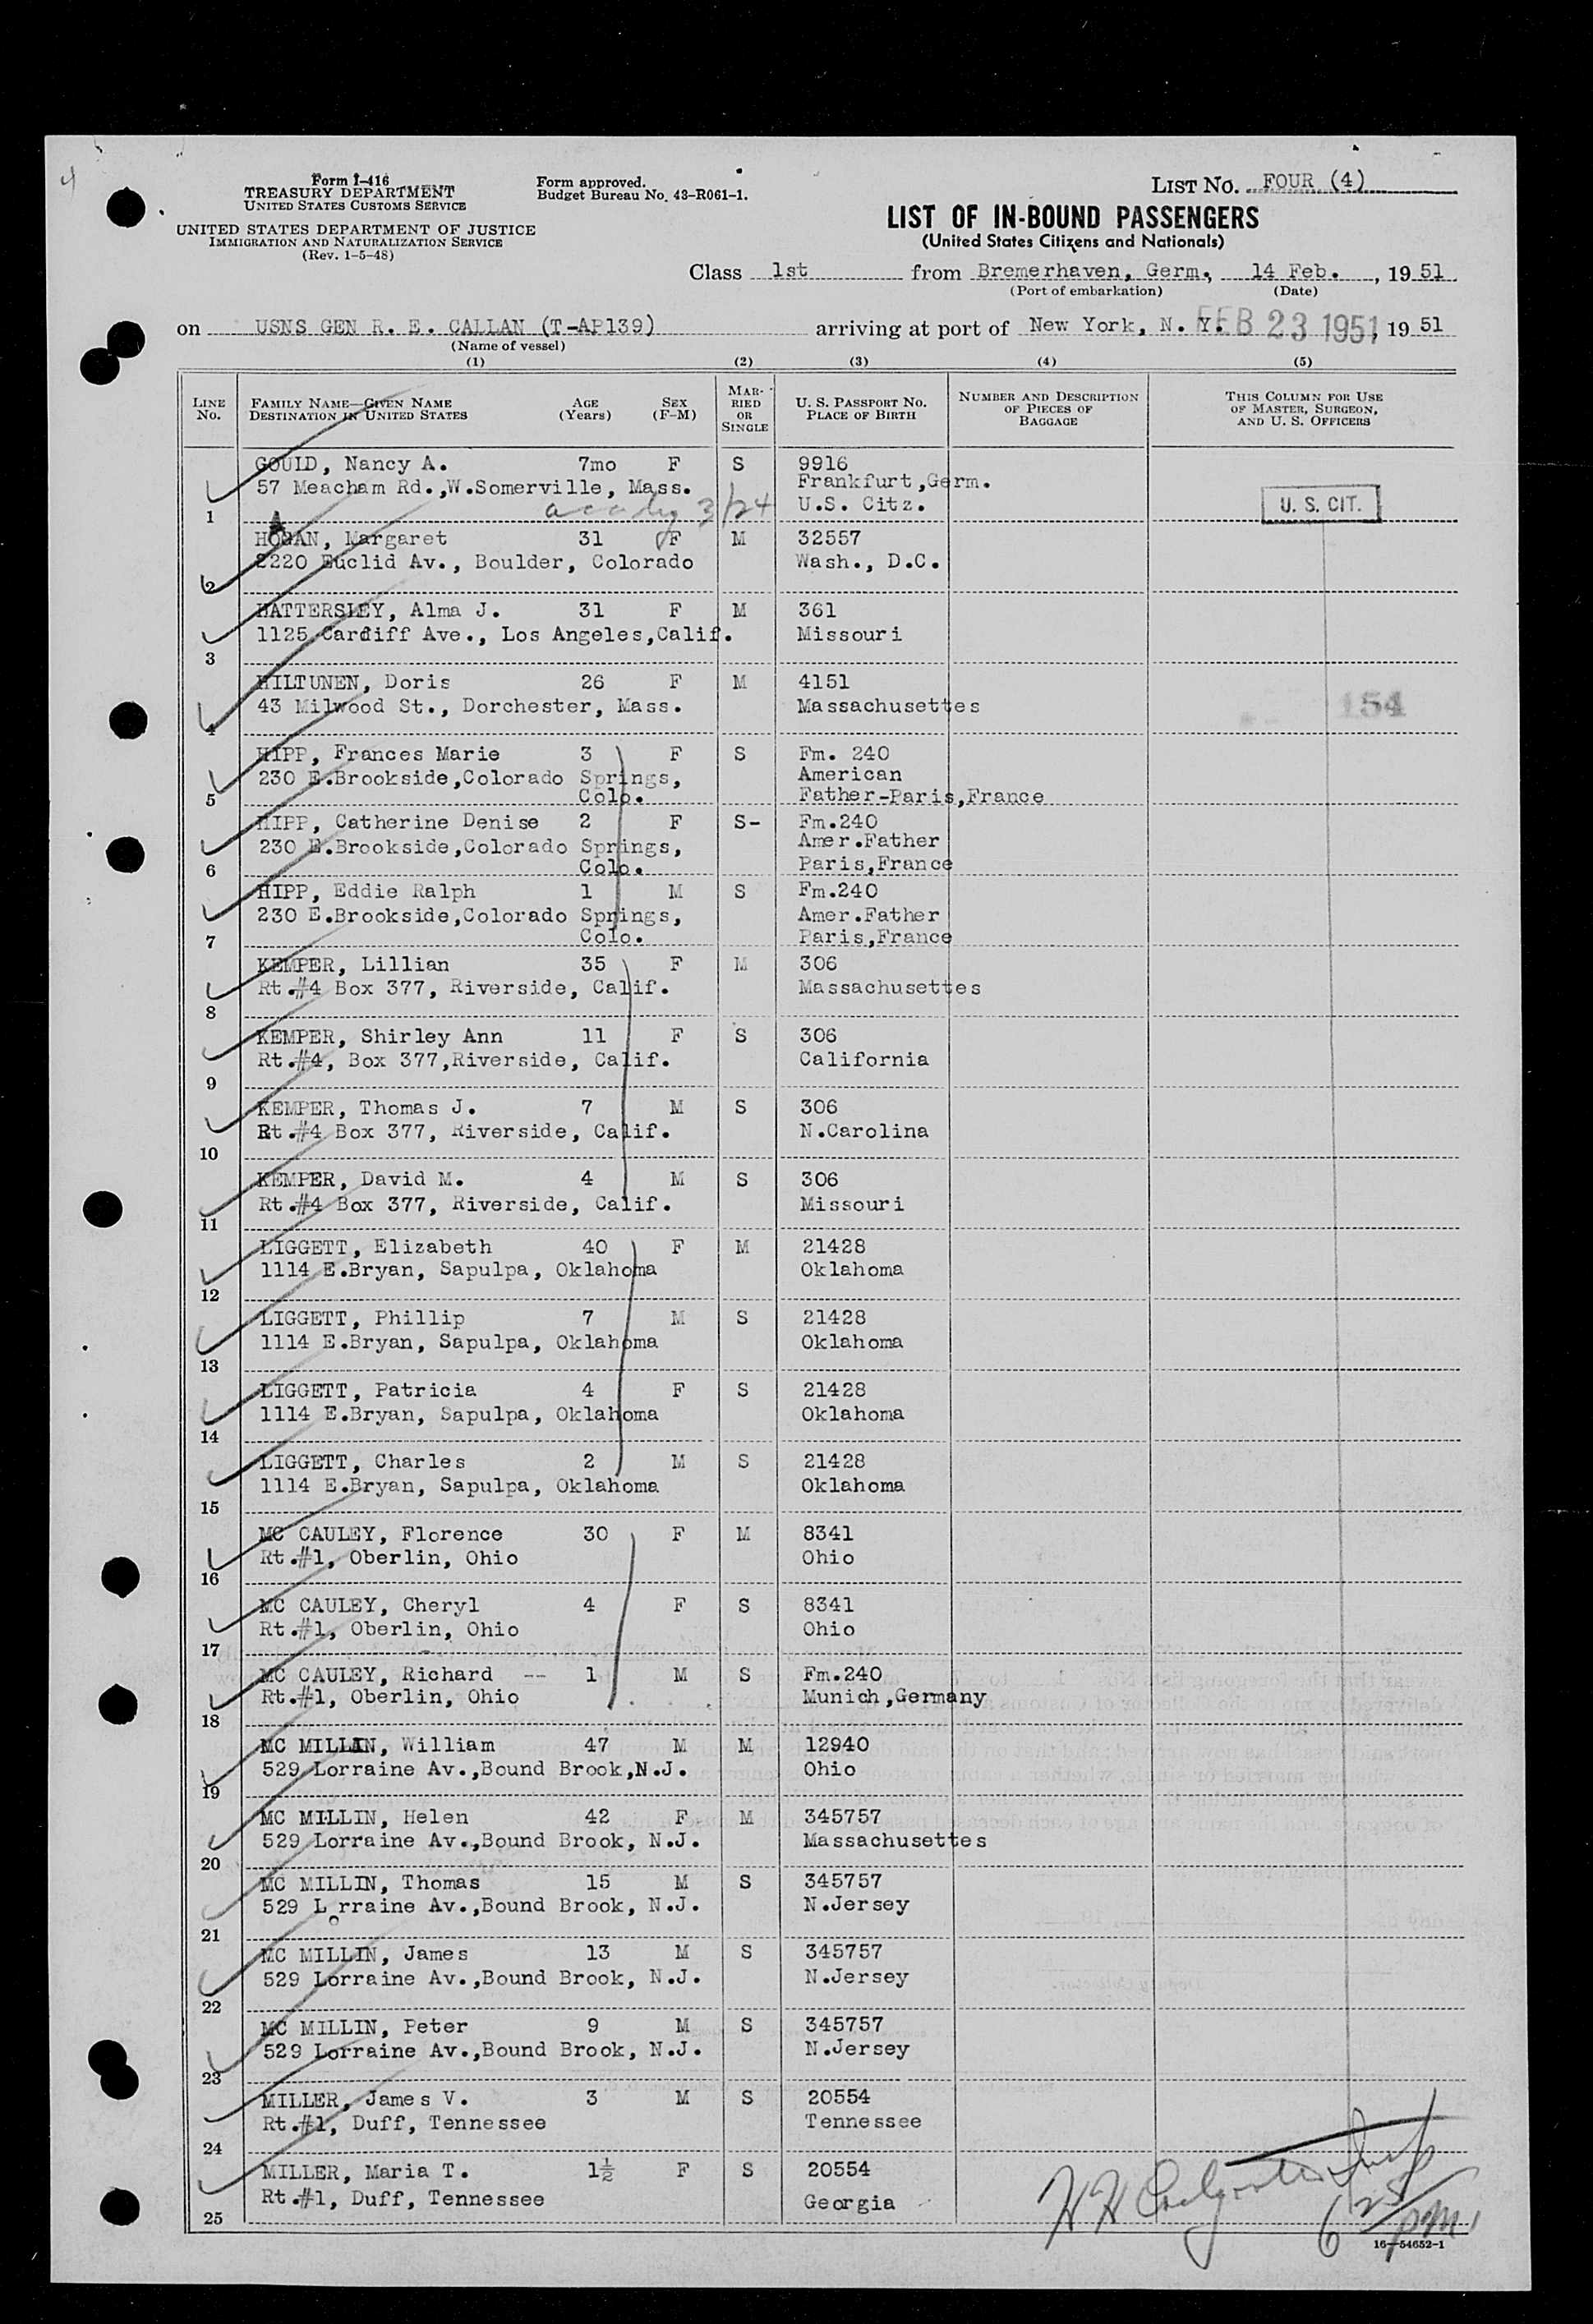 4
Form I-416
TREASURY DEPARTMENT
UNITED STATES CUSTOMS SERVICE
UNITED STATES DEPARTMENT OF JUSTICE
IMMIGRATION AND NATURALIZATION SERVICE
(Rev. 1-5-48)
Form approved.
Budget Bureau No. 43-R061-1.
LIST NO. FOUR (4)
LIST OF IN-BOUND PASSENGERS
(United States Citizens and Nationals)
Class 1st from Bremerhaven, Germ., 14 Feb., 19 51
(Port of embarkation) (Date)
on USNS GEN R. E. CALLAN (T-AP139) arriving at port of New York, N. Y. FEB 23 1951, 19 51
(Name of vessel)
(1) (2) (3) (4) (5)
LINE No. FAMILY NAME—GIVEN NAME DESTINATION IN UNITED STATES AGE (Years) SEX (F-M) MARRIED OR SINGLE U. S. PASSPORT NO. PLACE OF BIRTH NUMBER AND DESCRIPTION OF PIECES OF BAGGAGE THIS COLUMN FOR USE OF MASTER, SURGEON, AND U. S. OFFICERS
GOULD, Nancy A. 7mo F S 9916
57 Meacham Rd.,W.Somerville, Mass. Frankfurt,Germ.
1 3/24 U.S. Citz. U. S. CIT.
HOGAN, Margaret 31 F M 32557
2220 Euclid Av., Boulder, Colorado Wash., D.C.
2
HATTERSLEY, Alma J. 31 F M 361
1125 Cardiff Ave., Los Angeles,Calif. Missouri
3
HILTUNEN, Doris 26 F M 4151
43 Milwood St., Dorchester, Mass. Massachusettes 154
4
HIPP, Frances Marie 3 F S Fm. 240
230 E.Brookside,Colorado Springs, American
5 Colo. Father-Paris,France
HIPP, Catherine Denise 2 F S- Fm.240
230 E.Brookside,Colorado Springs, Amer.Father
6 Colo. Paris,France
HIPP, Eddie Ralph 1 M S Fm.240
230 E.Brookside,Colorado Springs, Amer.Father
7 Colo. Paris,France
KEMPER, Lillian 35 F M 306
Rt.#4 Box 377, Riverside, Calif. Massachusettes
8
KEMPER, Shirley Ann 11 F S 306
Rt.#4, Box 377,Riverside, Calif. California
9
KEMPER, Thomas J. 7 M S 306
Rt.#4 Box 377, Riverside, Calif. N.Carolina
10
KEMPER, David M. 4 M S 306
Rt.#4 Box 377, Riverside, Calif. Missouri
11
LIGGETT, Elizabeth 40 F M 21428
1114 E.Bryan, Sapulpa, Oklahoma Oklahoma
12
LIGGETT, Phillip 7 M S 21428
1114 E.Bryan, Sapulpa, Oklahoma Oklahoma
13
LIGGETT, Patricia 4 F S 21428
1114 E.Bryan, Sapulpa, Oklahoma Oklahoma
14
LIGGETT, Charles 2 M S 21428
1114 E.Bryan, Sapulpa, Oklahoma Oklahoma
15
MC CAULEY, Florence 30 F M 8341
Rt.#1, Oberlin, Ohio Ohio
16
MC CAULEY, Cheryl 4 F S 8341
Rt.#1, Oberlin, Ohio Ohio
17
MC CAULEY, Richard -- 1 M S Fm.240
Rt.#1, Oberlin, Ohio Munich,Germany
18
MC MILLIN, William 47 M M 12940
529 Lorraine Av.,Bound Brook,N.J. Ohio
19
MC MILLIN, Helen 42 F M 345757
529 Lorraine Av.,Bound Brook, N.J. Massachusettes
20
MC MILLIN, Thomas 15 M S 345757
529 Lorraine Av.,Bound Brook, N.J. N.Jersey
21
MC MILLIN, James 13 M S 345757
529 Lorraine Av.,Bound Brook, N.J. N.Jersey
22
MC MILLIN, Peter 9 M S 345757
529 Lorraine Av.,Bound Brook, N.J. N.Jersey
23
MILLER, James V. 3 M S 20554
Rt.#1, Duff, Tennessee Tennessee
24
MILLER, Maria T. 1½ F S 20554
Rt.#1, Duff, Tennessee Georgia
25
6 25/PM
16—54652-1